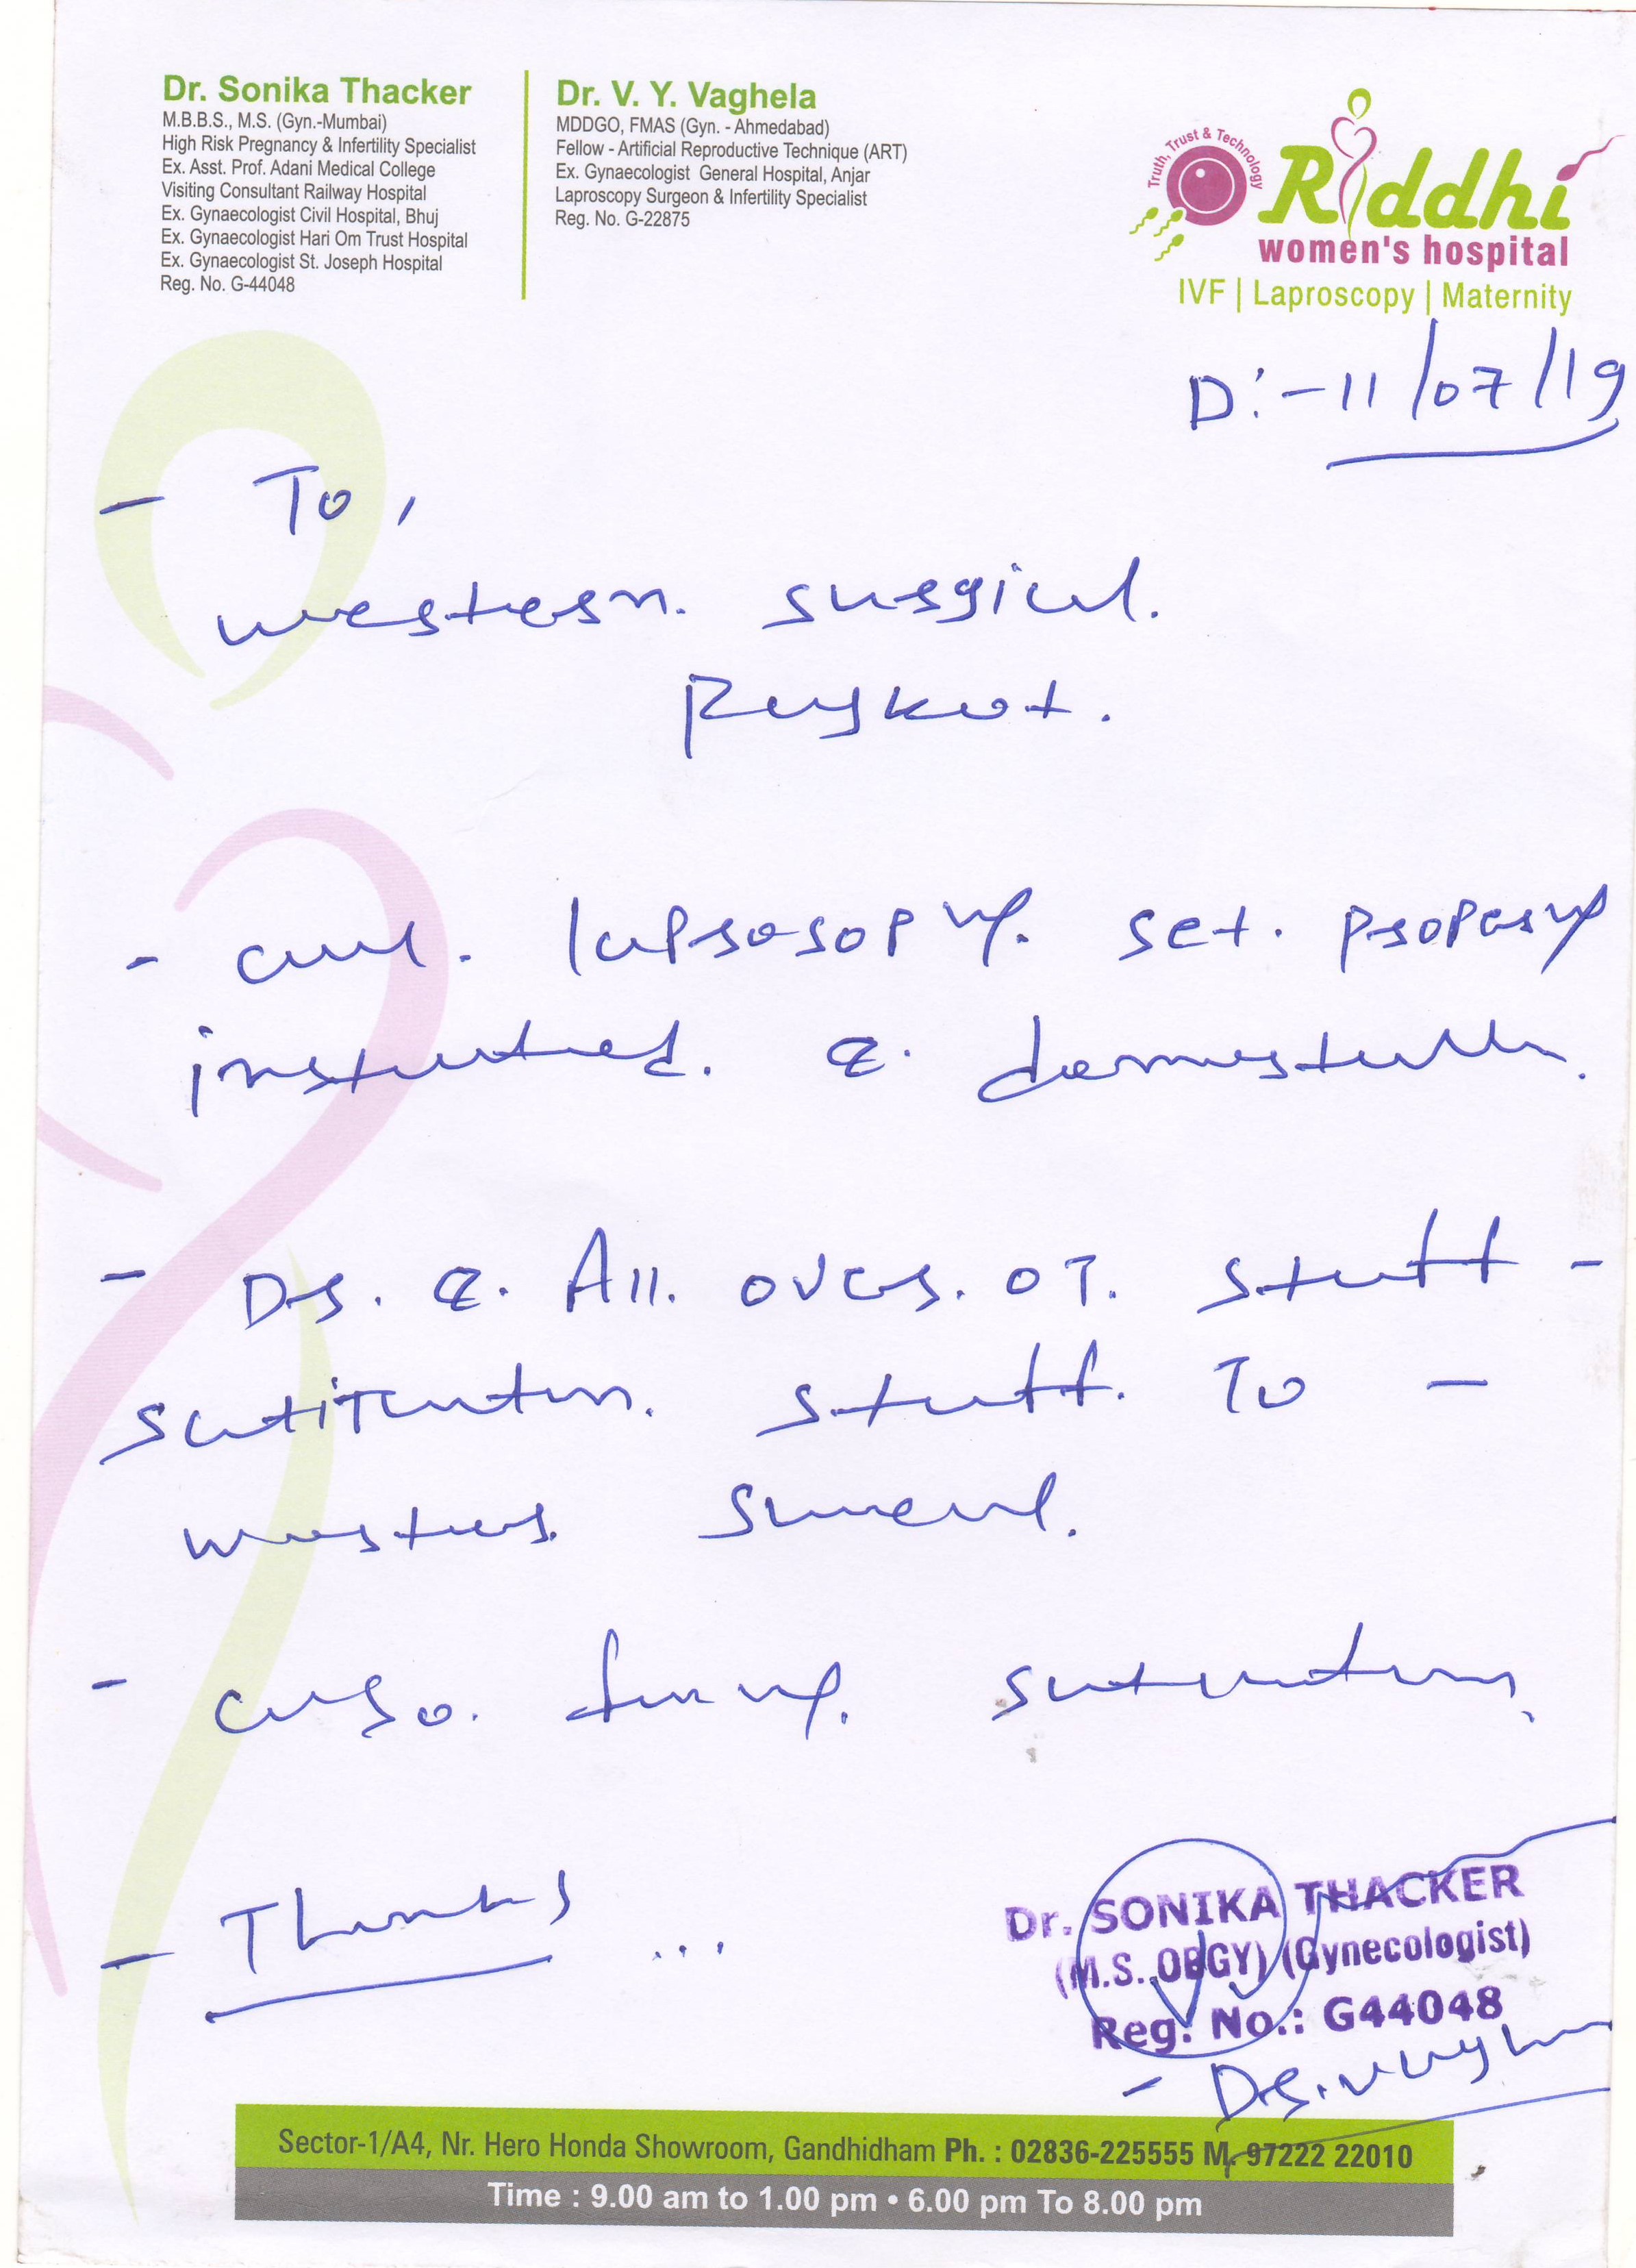 Dr. Sonika Thacker
M.B.B.S., M.S. (Gyn.-Mumbai)
High Risk Pregnancy & Infertility Specialist
Ex. Asst. Prof. Adani Medical College
Visiting Consultant Railway Hospital
Ex. Gynaecologist Civil Hospital, Bhuj
Ex. Gynaecologist Hari Om Trust Hospital
Ex. Gynaecologist St. Joseph Hospital
Reg. No. G-44048
Dr. V. Y. Vaghela
MDDGO, FMAS (Gyn. - Ahmedabad)
Fellow - Artificial Reproductive Technique (ART)
Ex. Gynaecologist General Hospital, Anjar
Laproscopy Surgeon & Infertility Specialist
Reg. No. G-22875
Truth, Trust & Technology
Riddhi
women's hospital
IVF | Laproscopy | Maternity
D:-11/07/19
- To,
western. surgical.
Rajkot.
- laprosopy. set. propery
&.
- Dr. &. All. over. OT. staff -
staff. To -
-
- Thanks ...
Dr. SONIKA THACKER
(M.S. OBGY) (Gynecologist)
Reg. No.: G44048
- Dr. Vaghela
Sector-1/A4, Nr. Hero Honda Showroom, Gandhidham Ph. : 02836-225555 M. 97222 22010
Time : 9.00 am to 1.00 pm • 6.00 pm To 8.00 pm